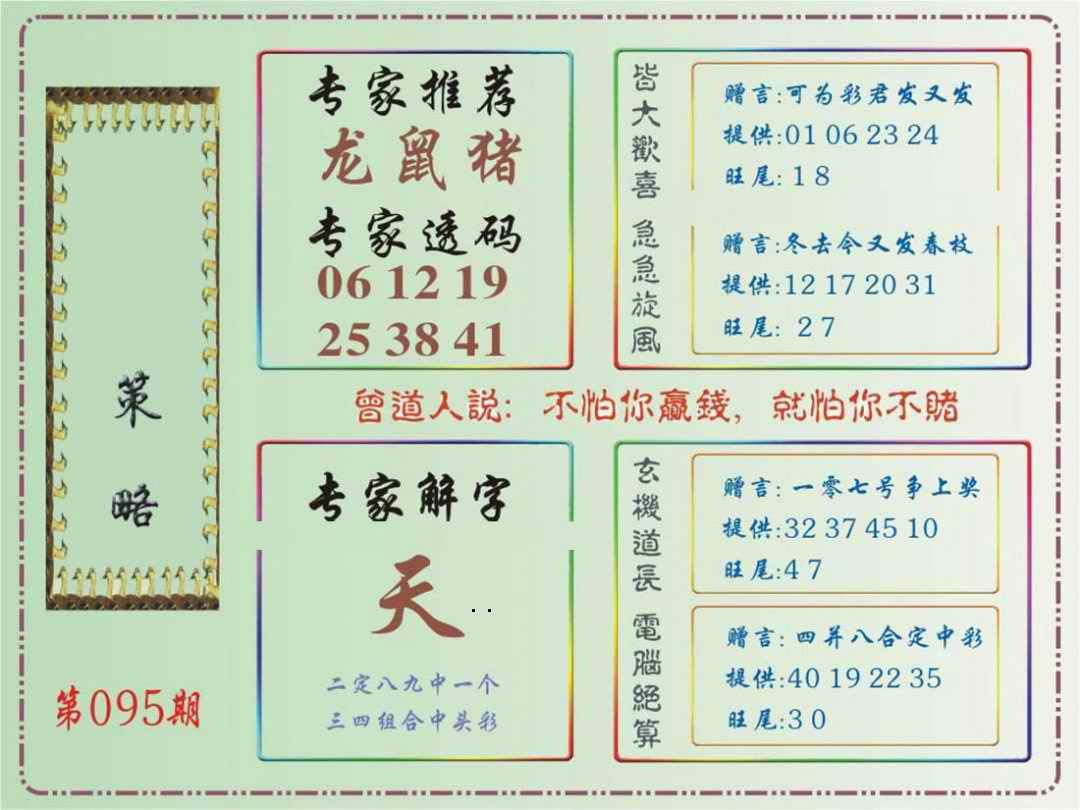 策
略
第095期
专家推荐
龙鼠猪
专家透码
06 12 19
25 38 41
皆大歡喜
赠言:可为彩君发又发
提供:01 06 23 24
旺尾: 1 8
急急旋風
赠言:冬去今又发春枝
提供:12 17 20 31
旺尾: 2 7
曾道人説: 不怕你贏錢, 就怕你不賭
专家解字
天
二定八九中一个
三四组合中头彩
玄機道長
赠言: 一零七号争上奖
提供:32 37 45 10
旺尾:4 7
電腦絕算
赠言: 四并八合定中彩
提供:40 19 22 35
旺尾:3 0